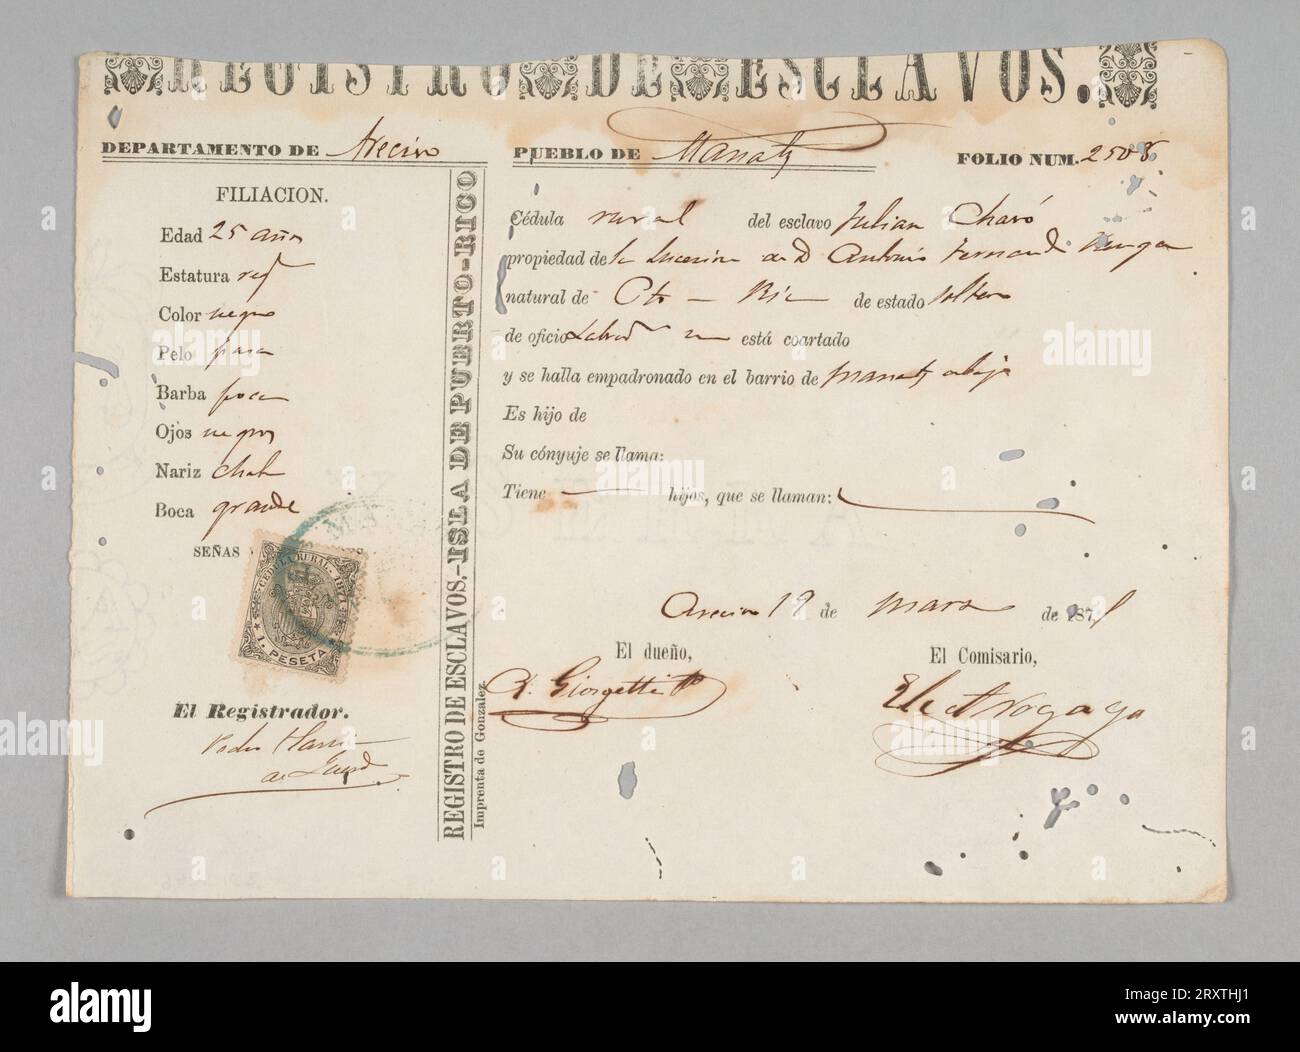 REGISTRO DE ESCLAVOS.
DEPARTAMENTO DE Arecivo
PUEBLO DE Manatí
FOLIO NUM. 2508
FILIACION.
Edad 25 años
Estatura reg
Color negro
Pelo pasa
Barba poca
Ojos negros
Nariz chata
Boca grande
SEÑAS
CEDULA RURAL. 1871
1. PESETA
El Registrador.
REGISTRO DE ESCLAVOS.-ISLA DE PUERTO-RICO
Imprenta de Gonzalez.
Cédula rural del esclavo Julian Charó
propiedad de la Sucesion de D Antonio Fernand
natural de Pto-Rico de estado soltero
de oficio Labrad no está coartado
y se halla empadronado en el barrio de Manatí abajo
Es hijo de
Su cónyuje se llama:
Tiene hijos, que se llaman:
Arecivo 19 de marzo de 1871
El dueño,
A. Giorgetti
El Comisario,
alamy
Image ID: 2RXTHJ1
www.alamy.com